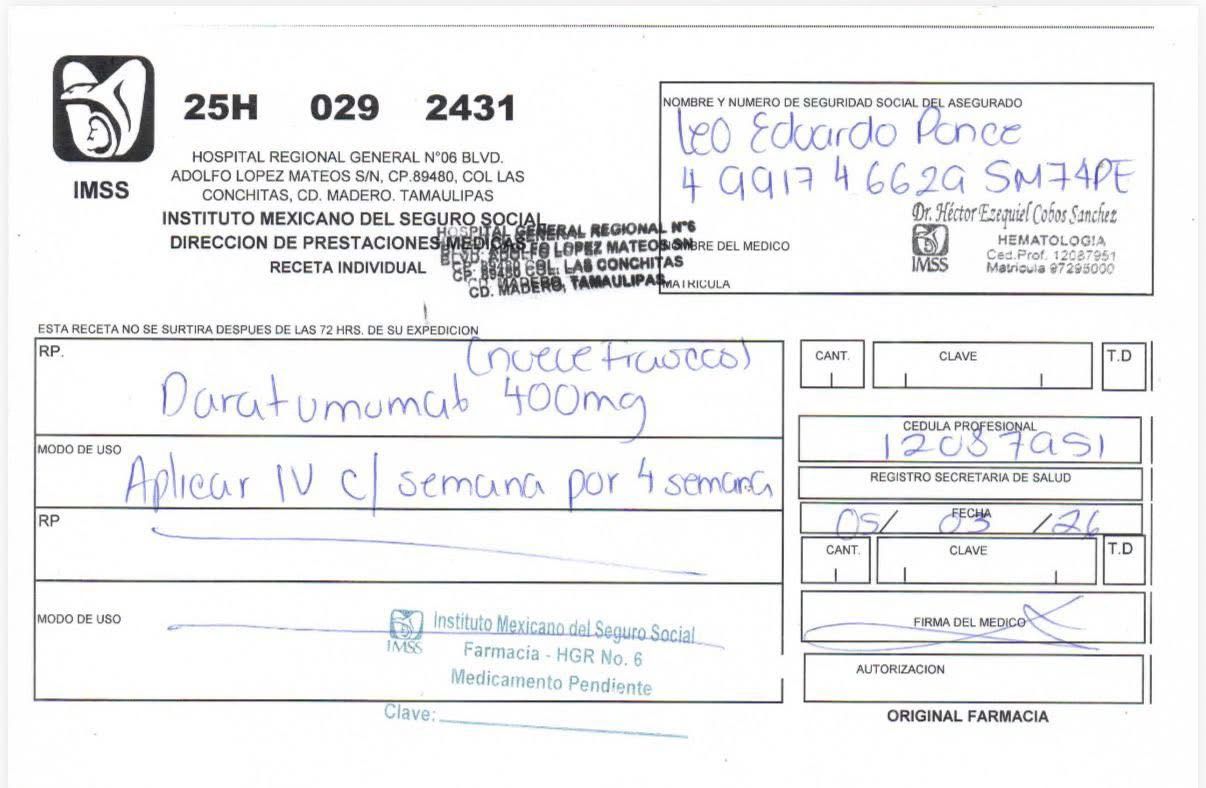 25H 029 2431
IMSS
HOSPITAL REGIONAL GENERAL N°06 BLVD.
ADOLFO LOPEZ MATEOS S/N, CP.89480, COL LAS
CONCHITAS, CD. MADERO. TAMAULIPAS
INSTITUTO MEXICANO DEL SEGURO SOCIAL
DIRECCION DE PRESTACIONES MEDICAS
RECETA INDIVIDUAL
HOSPITAL GENERAL REGIONAL N°6
BLVD. ADOLFO LOPEZ MATEOS SN
CP. 89480 COL. LAS CONCHITAS
CD. MADERO, TAMAULIPAS
NOMBRE Y NUMERO DE SEGURIDAD SOCIAL DEL ASEGURADO
Leo Eduardo Ponce
4 9917 4 6629 SM74PE
Dr. Héctor Ezequiel Cobos Sanchez
IMSS
HEMATOLOGIA
Ced.Prof. 12087951
Matricula 97295000
NOMBRE DEL MEDICO
MATRICULA
ESTA RECETA NO SE SURTIRA DESPUES DE LAS 72 HRS. DE SU EXPEDICION
RP.
Daratumumab 400mg
MODO DE USO
Aplicar IV c/ semana por 4 semana
RP
MODO DE USO
IMSS
Instituto Mexicano del Seguro Social
Farmacia - HGR No. 6
Medicamento Pendiente
Clave:
CANT. CLAVE T.D
CEDULA PROFESIONAL
12087951
REGISTRO SECRETARIA DE SALUD
FECHA
05/ 03 /26
CANT. CLAVE T.D
FIRMA DEL MEDICO
AUTORIZACION
ORIGINAL FARMACIA